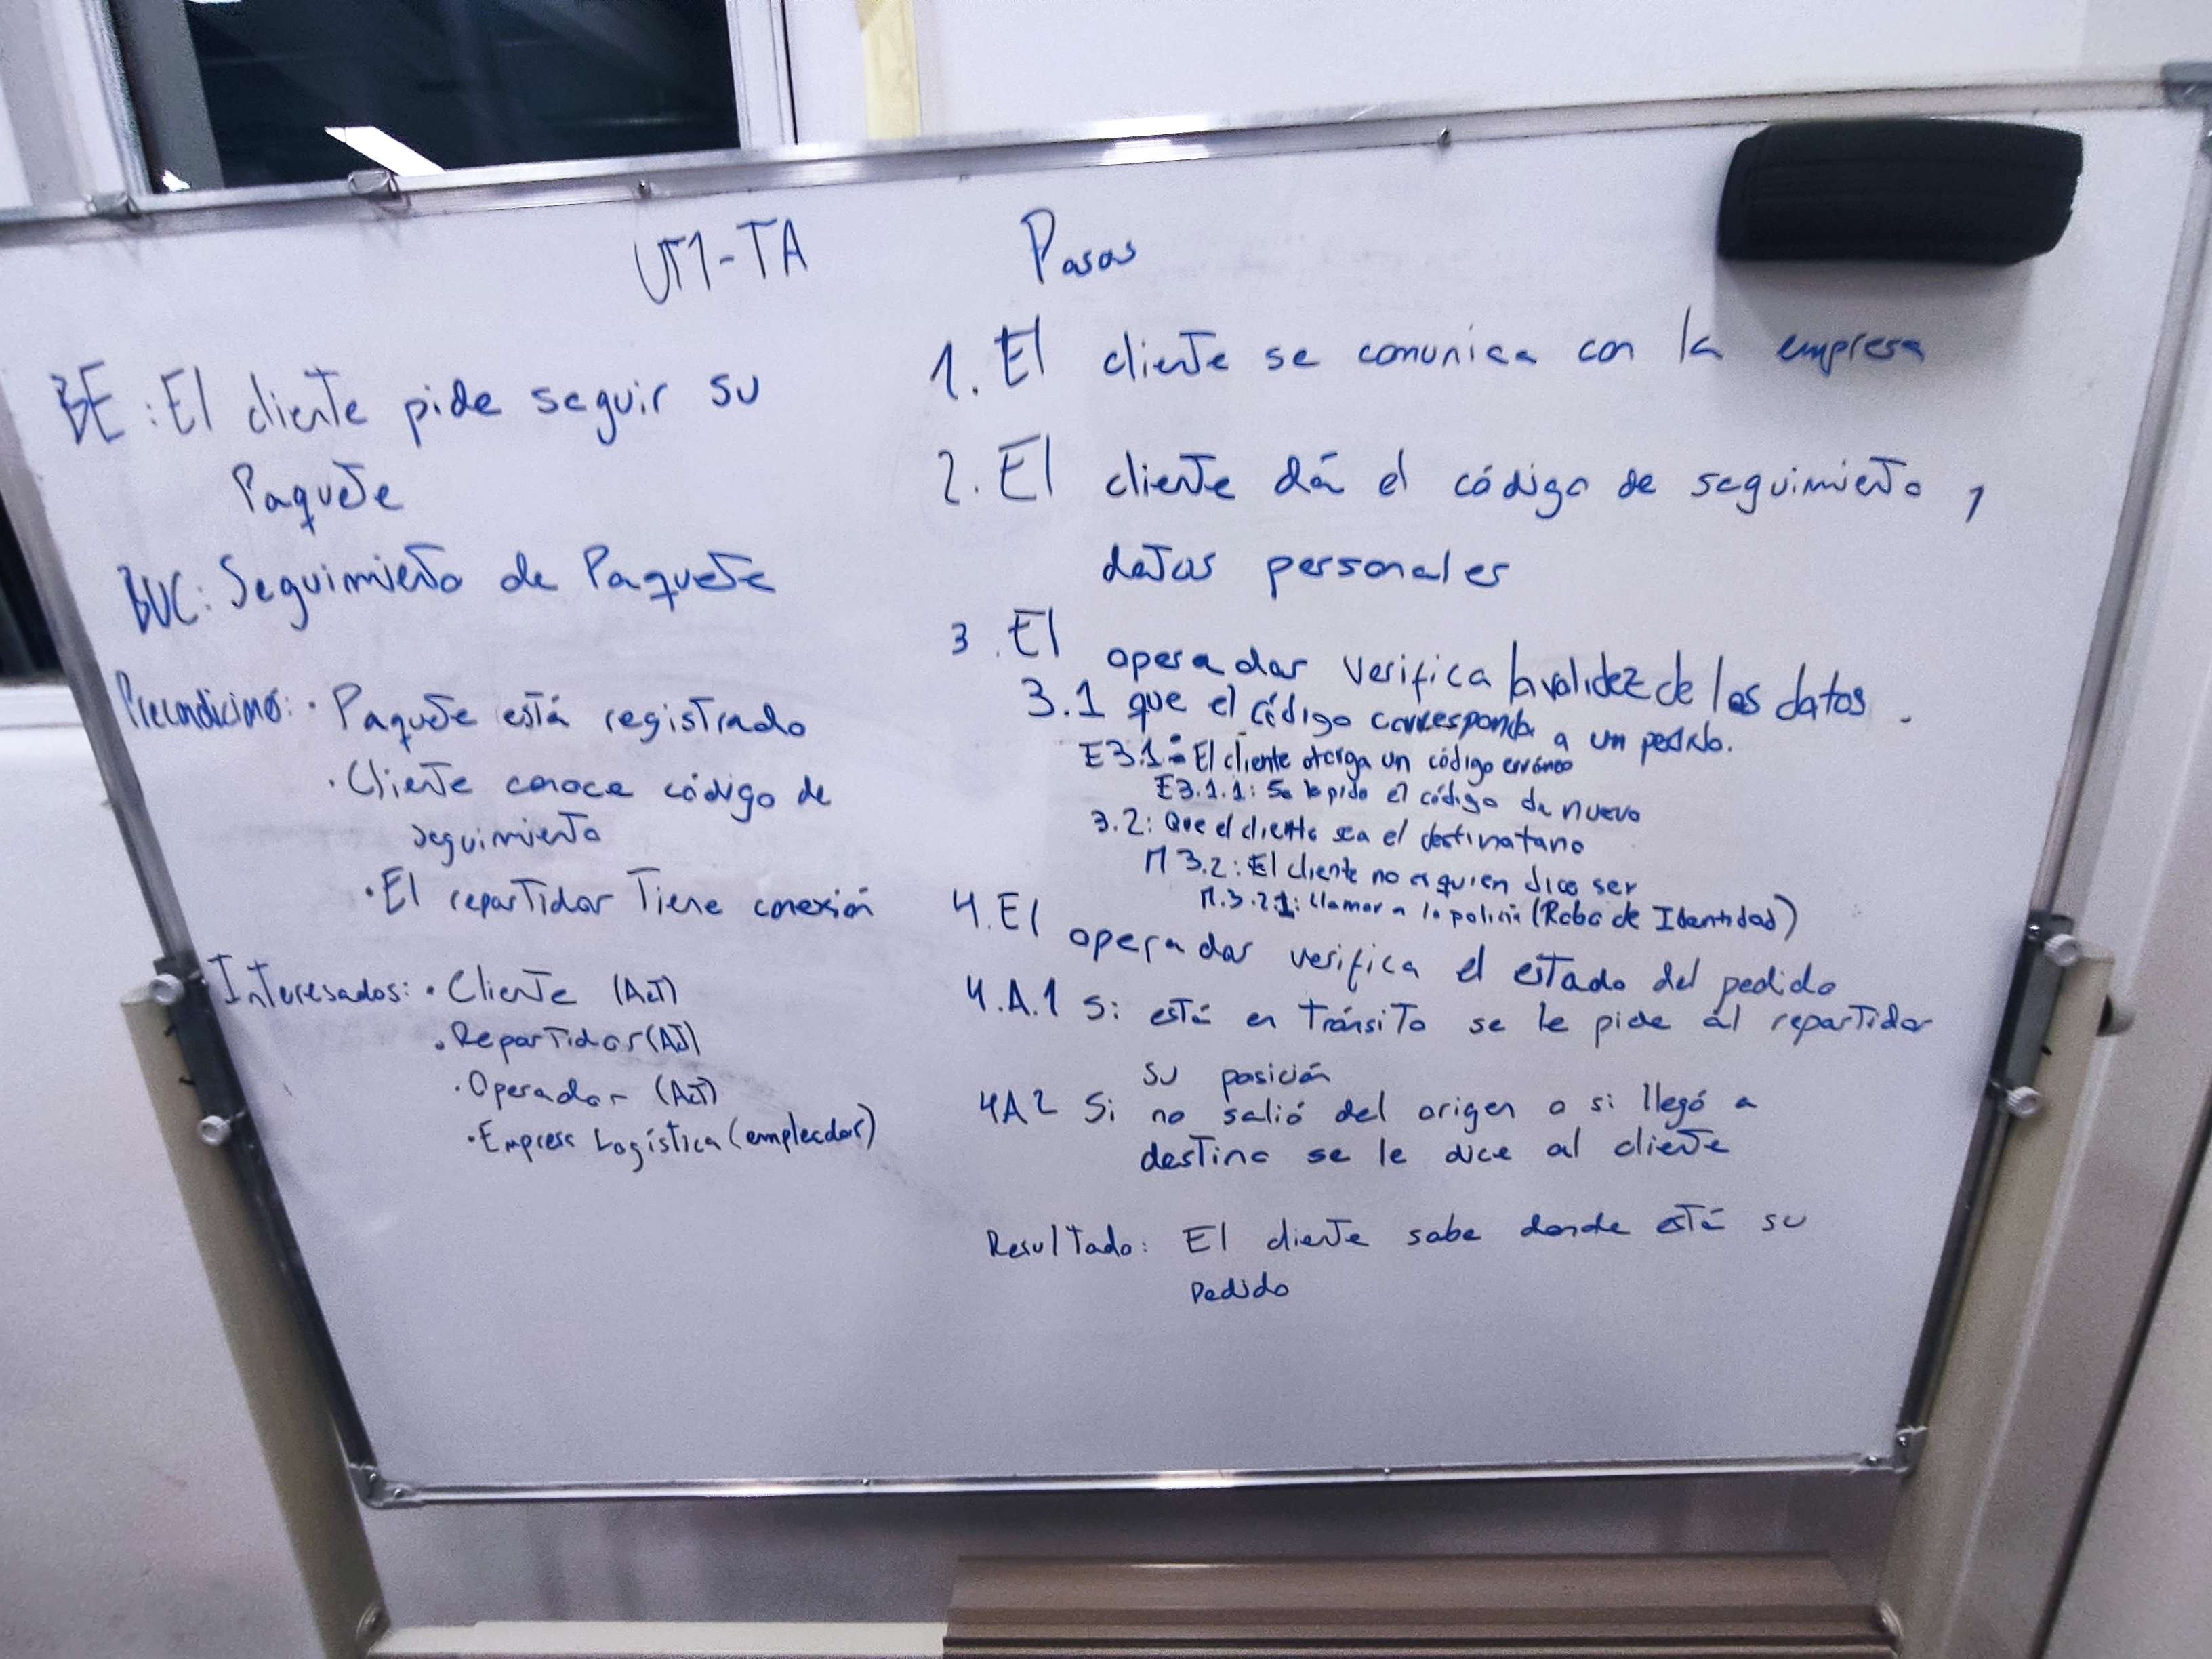 UT1-TA
BE: El cliente pide seguir su
Paquete
BUC: Seguimiento de Paquete
Precondiciones: · Paquete está registrado
· Cliente conoce código de
seguimiento
· El repartidor Tiene conexión
Interesados: · Cliente (Act)
· Repartidor (Act)
· Operador (Act)
· Empresa Logística (empleador)
Pasos
1. El cliente se comunica con la empresa
2. El cliente dá el código de seguimiento,
datos personales
3. El operador verifica la validez de los datos.
3.1 que el código corresponda a un pedido.
E3.1: El cliente otorga un código erróneo
E3.1.1: Se le pide el código de nuevo
3.2: Que el cliente sea el destinatario
M 3.2: El cliente no es quien dice ser
M.3.2.1: Llamar a la policía (Robo de Identidad)
4. El operador verifica el estado del pedido
4.A.1 Si está en tránsito se le pide al repartidor
su posición
4A2 Si no salió del origen o si llegó a
destino se le dice al cliente
Resultado: El cliente sabe donde está su
Pedido